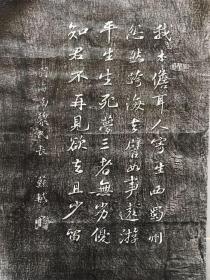 我本儋耳人寄生西蜀州
忽然跨海去譬如事遠遊
平生生死夢三者無劣優
知君不再見欲去且少留
蘇軾